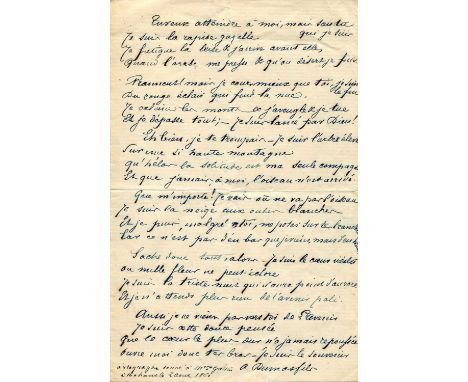 à moi, mais sais tu qui je suis
Je suis la rapide gazelle
Je fatigue la terre & j'arrive avant elle
Quand l'arabe me presse & qu'au désert je fuis
Vraiment! mais je cours mieux que toi, je suis
Du rouge éclair qui fend la nue
Je éclaire les monts j'aveugle & je tue
Et je dépasse tout; Je suis lancé par Dieu!
Eh bien, je te Je suis l'arbre élevé
Sur une si haute montagne
Qu'hélas la solitude est ma seule compagne
Et que jamais à moi, l'oiseau n'est arrivé
Que m'importe! Je vais où ne va pas l'oiseau
Je suis la neige aux blanches
Et je puis, malgré toi, me poser sur tes branches
Car ce n'est pas d'en bas que je viens mais d'en haut
Sache donc Je suis le cœur
où mille fleurs ne peut éclore
Je suis la triste nuit qui n'aura point d'aurore
Et je n'attends plus rien de l'avenir
Aussi je ne viens pas vers toi de l'avenir
Je suis cette douce pensée
Que le cœur le plus dur n'a jamais repoussée
ouvre moi donc tes bras Je suis le souvenir
A Dumas fils